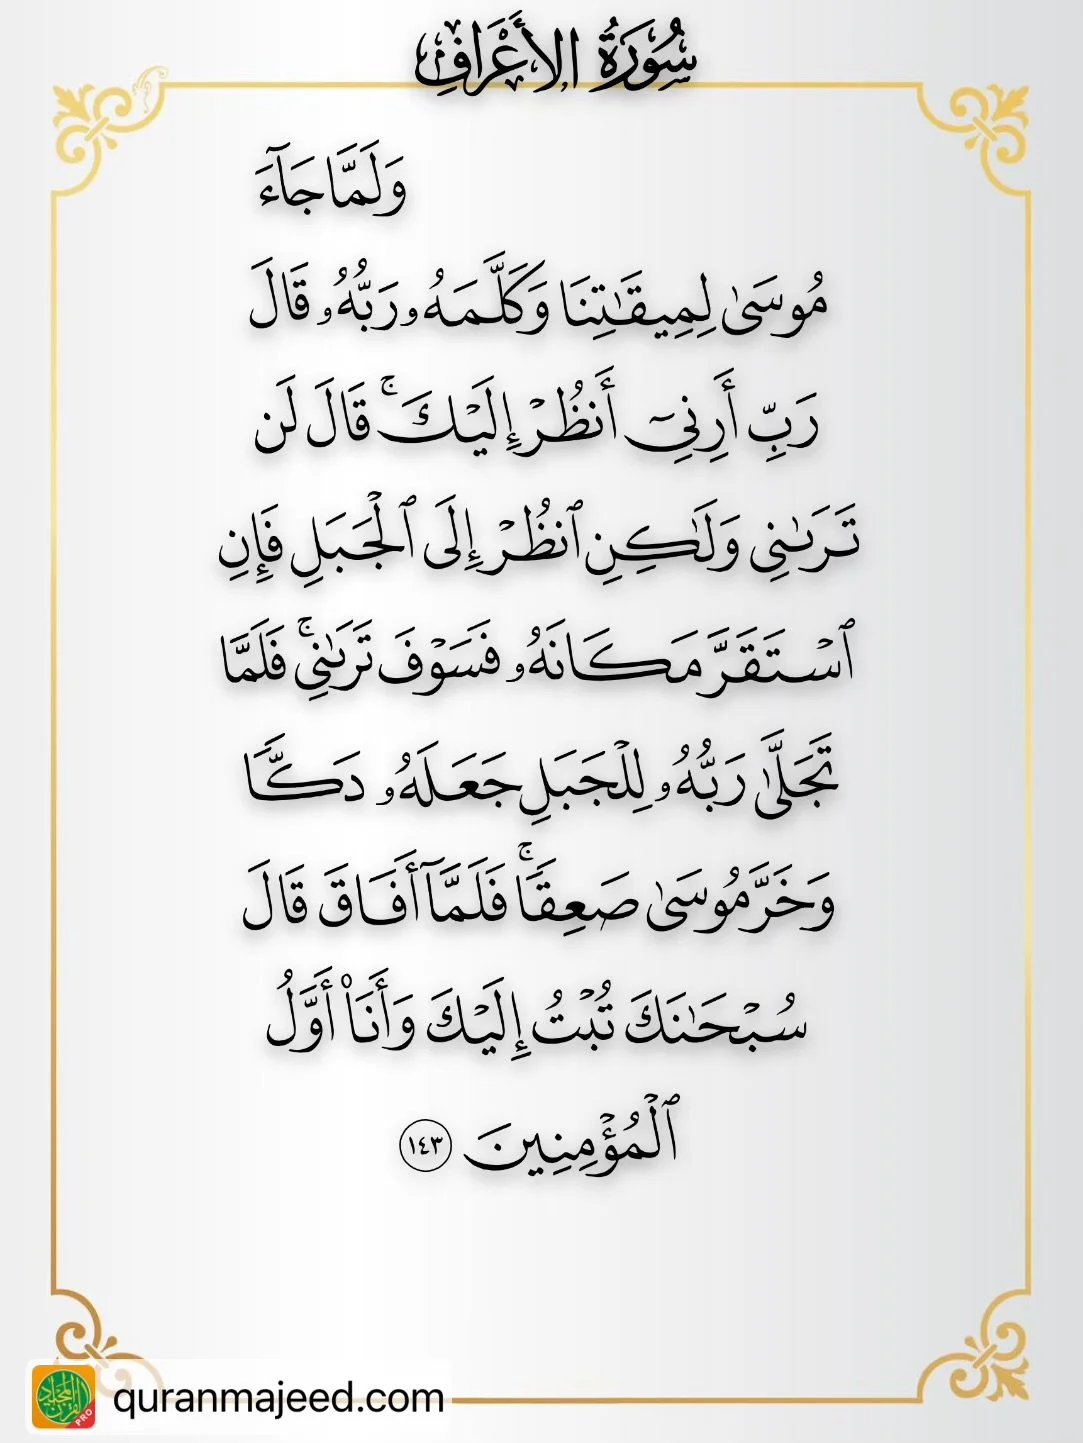 سُورَةُ الأَعْرَافِ
وَلَمَّا جَآءَ
مُوسَىٰ لِمِيقَٰتِنَا وَكَلَّمَهُۥ رَبُّهُۥ قَالَ
رَبِّ أَرِنِىٓ أَنظُرْ إِلَيْكَ ۚ قَالَ لَن
تَرَىٰنِى وَلَٰكِنِ ٱنظُرْ إِلَى ٱلْجَبَلِ فَإِنِ
ٱسْتَقَرَّ مَكَانَهُۥ فَسَوْفَ تَرَىٰنِى ۚ فَلَمَّا
تَجَلَّىٰ رَبُّهُۥ لِلْجَبَلِ جَعَلَهُۥ دَكًّا
وَخَرَّ مُوسَىٰ صَعِقًا ۚ فَلَمَّآ أَفَاقَ قَالَ
سُبْحَٰنَكَ تُبْتُ إِلَيْكَ وَأَنَا۠ أَوَّلُ
ٱلْمُؤْمِنِينَ ١٤٣
القرآن المجيد
PRO
quranmajeed.com